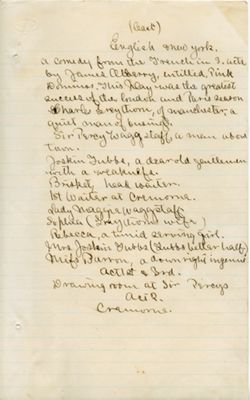 (Cast)
English & New york.
a comedy from the French in 3. acts
by James Alberry, entitled, Pink
Dominos. This Play was the greatest
success of the London and Paris season
Charle Greythorn, of manchester, a
quiet man of business.
Sir Percy Waggstaff, a man about
town.
Joskin Tubbs, a dear old gentleman
with a weak
Brisket, head waiter.
1st Waiter at Cremorne.
Lady Maggie Waggstaff
Sophia (Greythorns wife)
Rebecca, a timid serving girl.
Mrs Joskin Tubbs (Tubbs better half)
Miss Barron, a down right ingenue
Act 1st & 3rd.
Drawing room at Sir Percys
Act 2.
Cremorne.